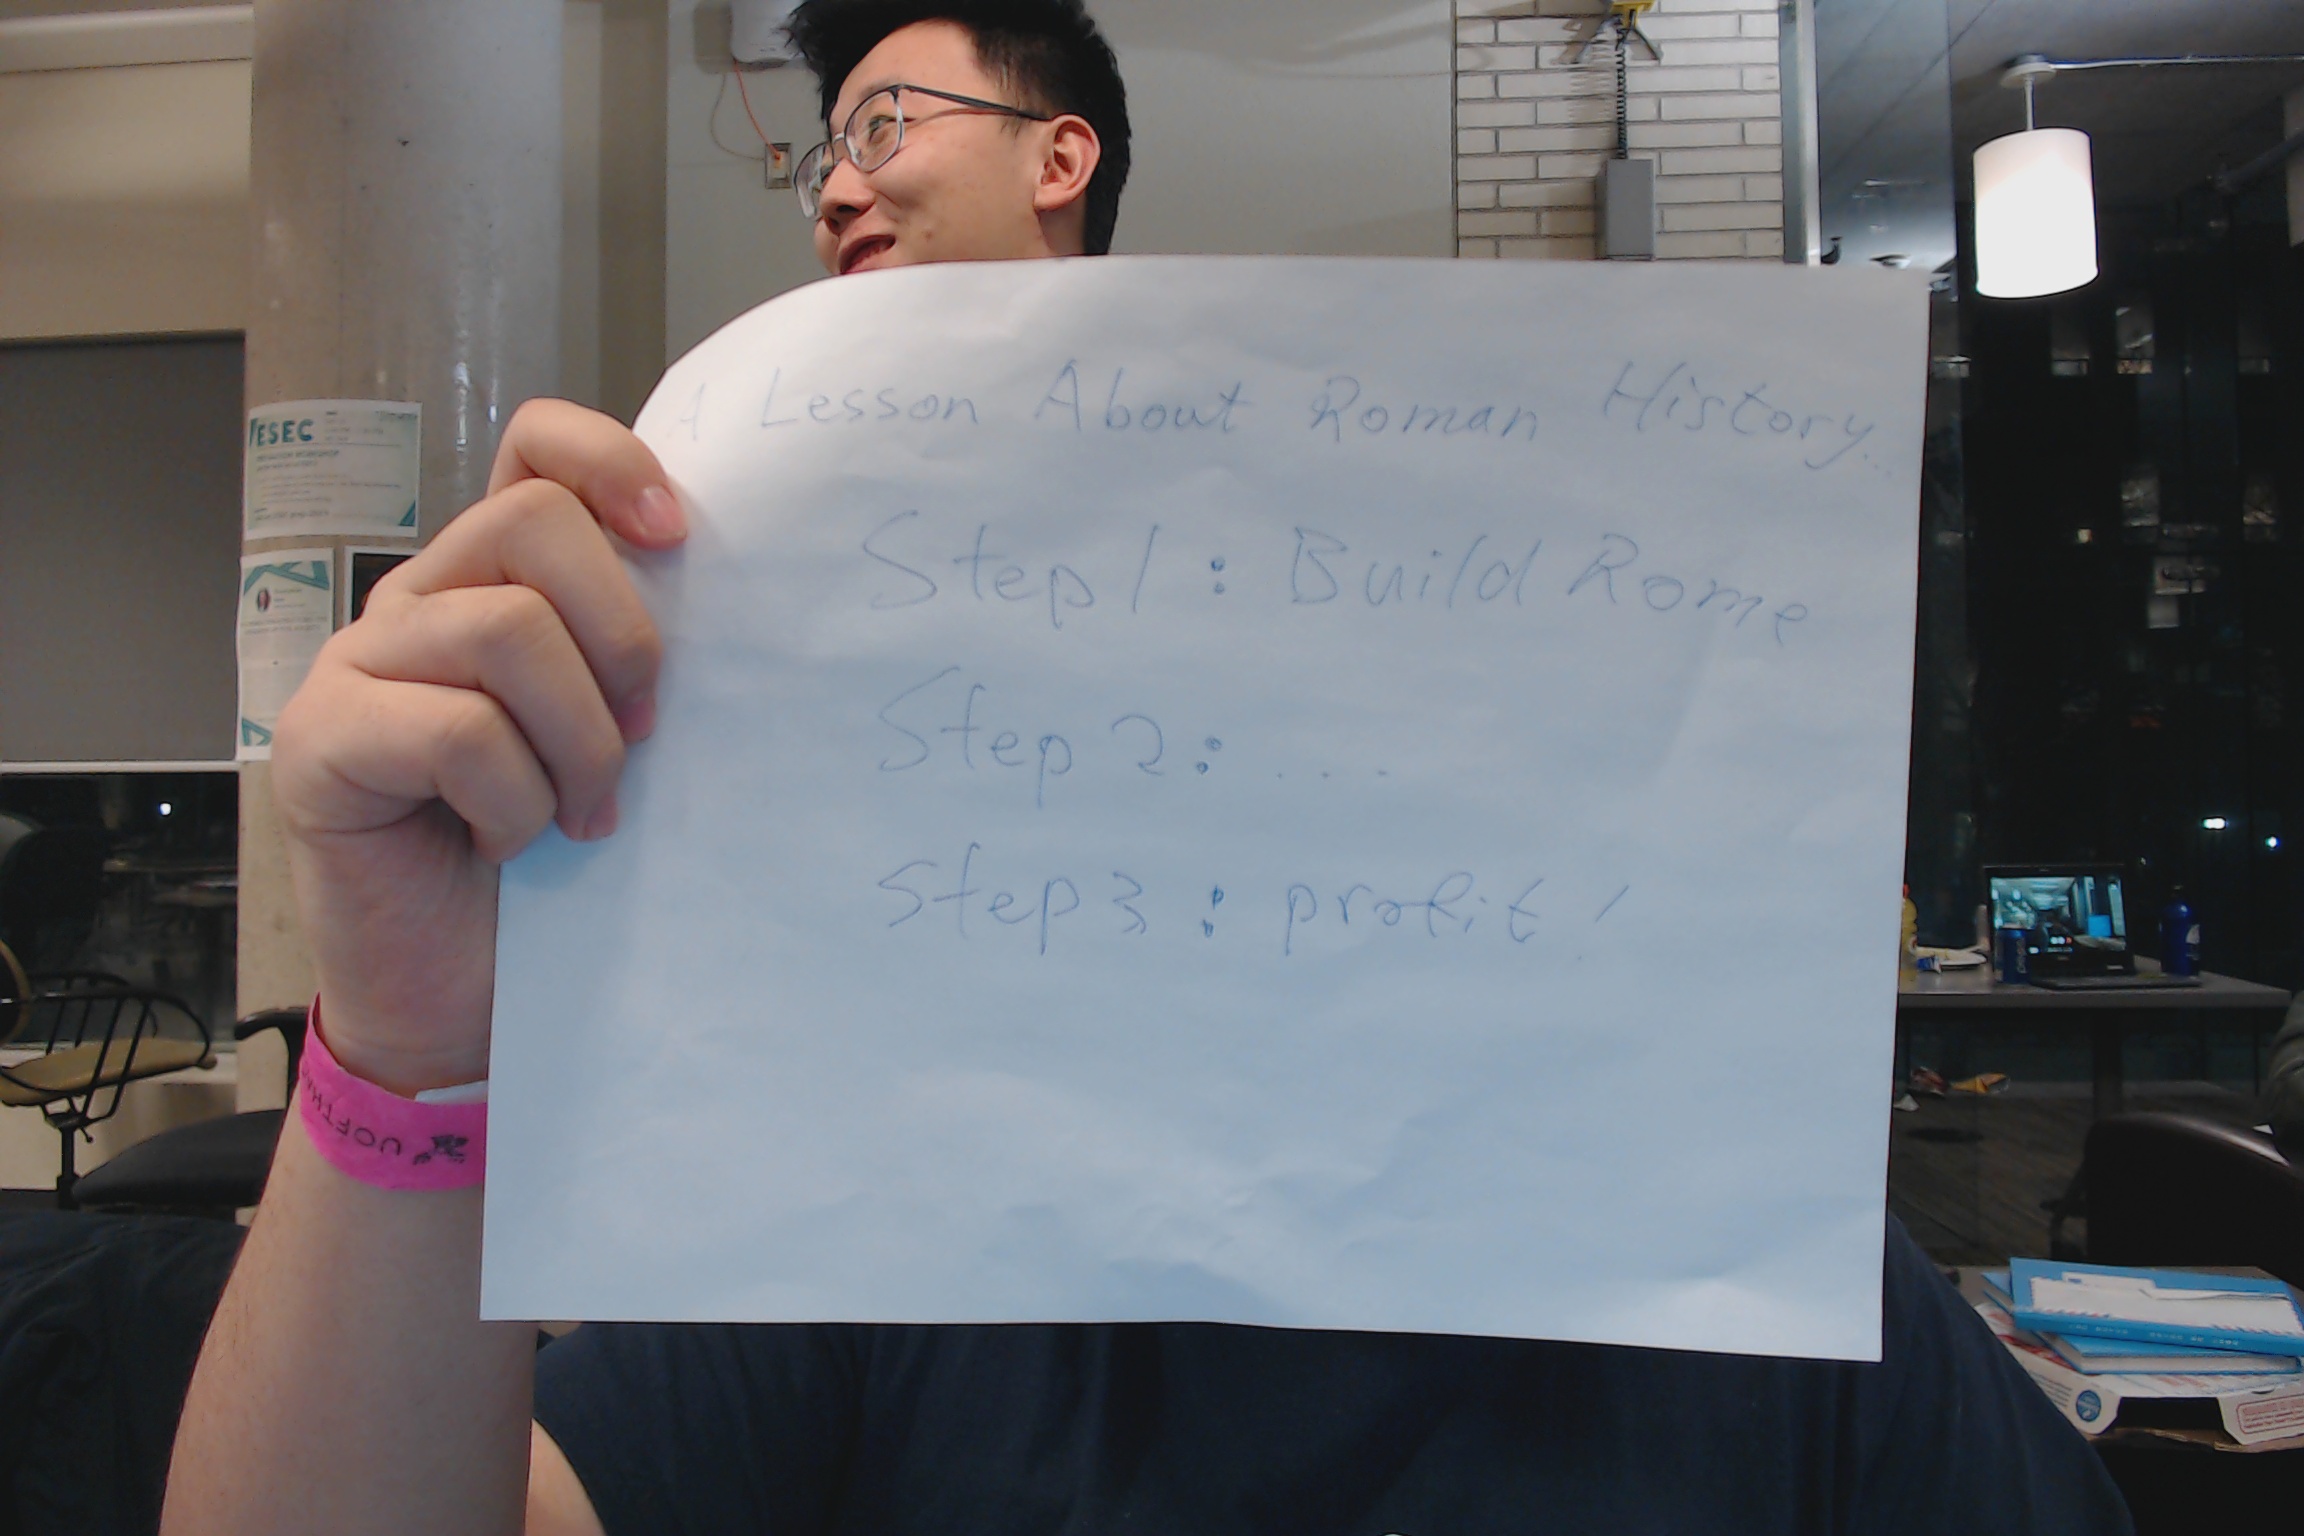 A Lesson About Roman History...
Step 1: Build Rome
Step 2: ...
Step 3: profit!
ESEC
UOFTHA